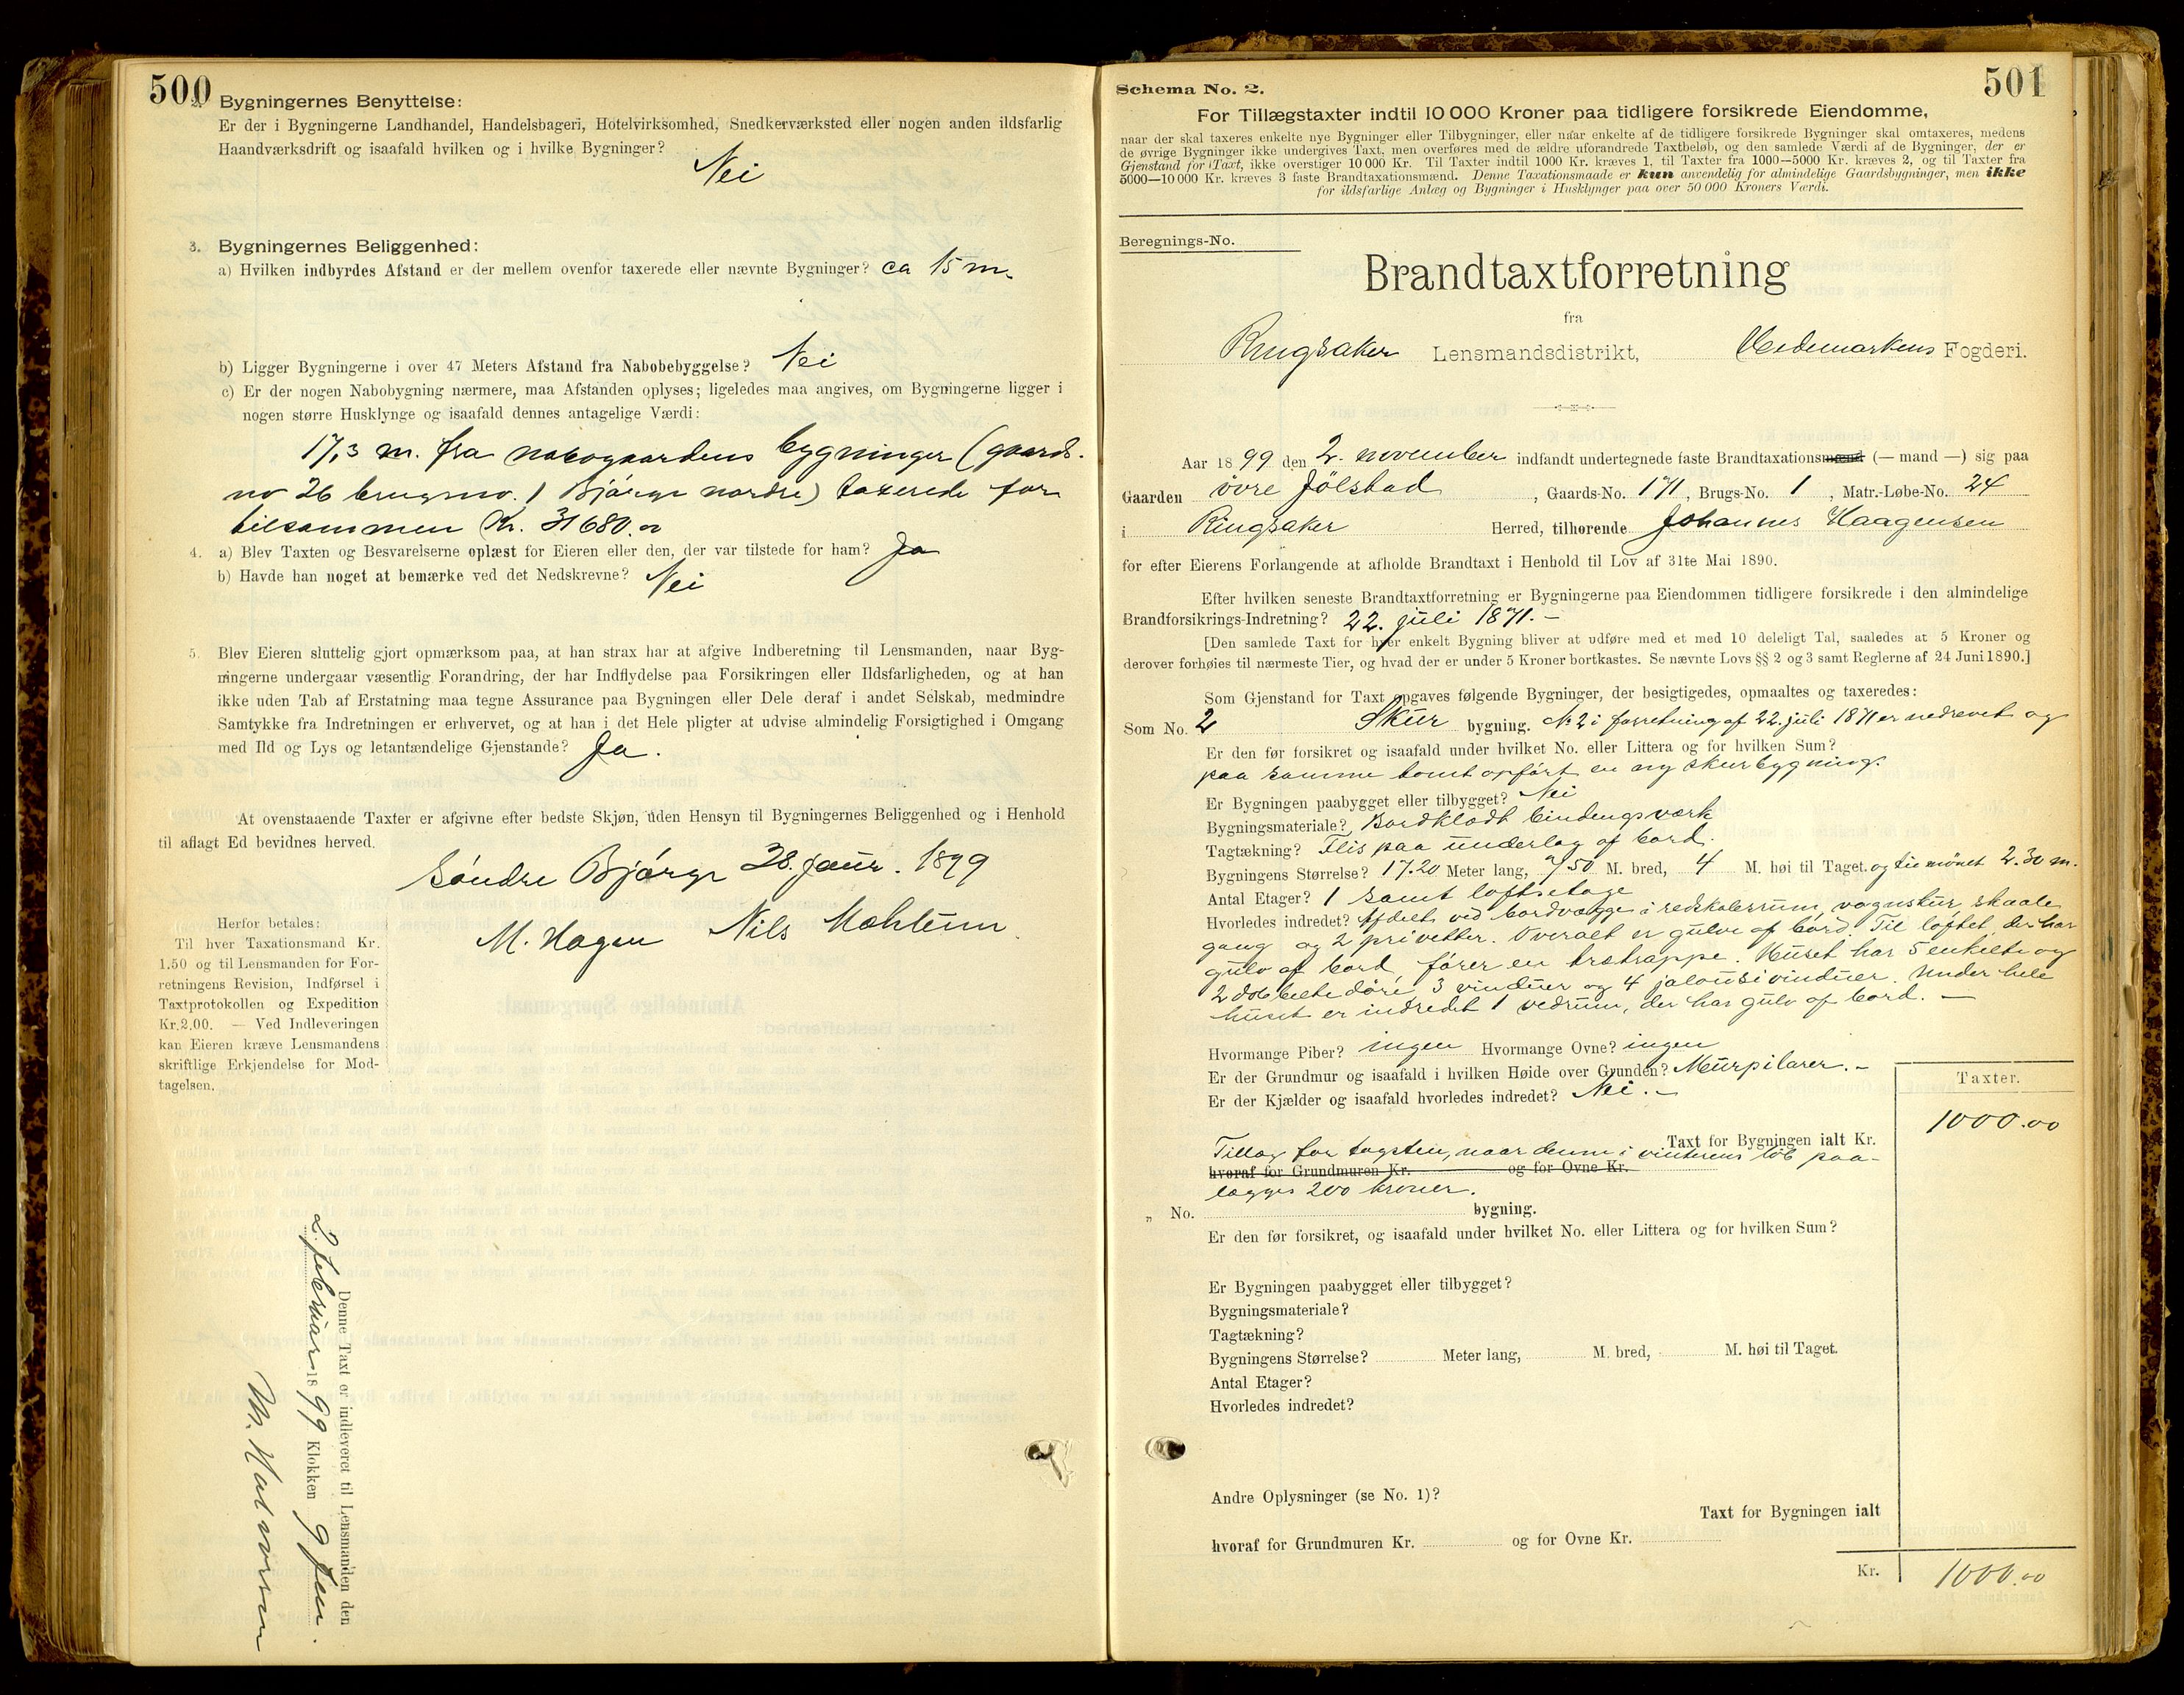 500
2. Bygningernes Benyttelse:
Er der i Bygningerne Landhandel, Handelsbageri, Hotelvirksomhed, Snedkerværksted eller nogen anden ildsfarlig
Haandværksdrift og isaafald hvilken og i hvilke Bygninger?
Nei
3. Bygningernes Beliggenhed:
a) Hvilken indbyrdes Afstand er der mellem ovenfor taxerede eller nævnte Bygninger? ca 15 m.
b) Ligger Bygningerne i over 47 Meters Afstand fra Nabobebyggelse? Nei
c) Er der nogen Nabobygning nærmere, maa Afstanden oplyses; ligeledes maa angives, om Bygningerne ligger i
nogen større Husklynge og isaafald dennes antagelige Værdi:
17,3 m. fra nabogaardens bygninger (gaards-
no 26 brugsno. 1 Bjørge nordre) taxerede for
tilsammen Kr. 31680.00
4. a) Blev Taxten og Besvarelserne oplæst for Eieren eller den, der var tilstede for ham? Ja
b) Havde han noget at bemærke ved det Nedskrevne? Nei
5. Blev Eieren sluttelig gjort opmærksom paa, at han strax har at afgive Indberetning til Lensmanden, naar Byg-
ningerne undergaar væsentlig Forandring, der har Indflydelse paa Forsikringen eller Ildsfarligheden, og at han
ikke uden Tab af Erstatning maa tegne Assurance paa Bygningen eller Dele deraf i andet Selskab, medmindre
Samtykke fra Indretningen er erhvervet, og at han i det Hele pligter at udvise almindelig Forsigtighed i Omgang
med Ild og Lys og letantændelige Gjenstande? Ja.
At ovenstaaende Taxter er afgivne efter bedste Skjøn, uden Hensyn til Bygningernes Beliggenhed og i Henhold
til aflagt Ed bevidnes herved.
Søndre Bjørge 28. januar. 1899
M. Hagen Nils Mæhlum
Herfor betales:
Til hver Taxationsmand Kr.
1.50 og til Lensmanden for For-
retningens Revision, Indførsel i
Taxtprotokollen og Expedition
Kr. 2.00. — Ved Indleveringen
kan Eieren kræve Lensmandens
skriftlige Erkjendelse for Mod-
tagelsen.
Denne Taxt er indleveret til Lensmanden den
2. februar 1899 Klokken 9 fm.
M. Halvorsen
501
Schema No. 2.
For Tillægstaxter indtil 10 000 Kroner paa tidligere forsikrede Eiendomme,
naar der skal taxeres enkelte nye Bygninger eller Tilbygninger, eller naar enkelte af de tidligere forsikrede Bygninger skal omtaxeres, medens
de øvrige Bygninger ikke undergives Taxt, men overføres med de ældre uforandrede Taxtbeløb, og den samlede Værdi af de Bygninger, der er
Gjenstand for Taxt, ikke overstiger 10 000 Kr. Til Taxter indtil 1000 Kr. kræves 1, til Taxter fra 1000—5000 Kr. kræves 2, og til Taxter fra
5000—10 000 Kr. kræves 3 faste Brandtaxationsmænd. Denne Taxationsmaade er kun anvendelig for almindelige Gaardsbygninger, men ikke
for ildsfarlige Anlæg og Bygninger i Husklynger paa over 50 000 Kroners Værdi.
Beregnings-No.
Brandtaxtforretning
fra
Ringsaker Lensmandsdistrikt, Hedemarkens Fogderi.
Aar 1899 den 2. november indfandt undertegnede faste Brandtaxationsmænd (— mand —) sig paa
Gaarden øvre Jølstad, Gaards-No. 171, Brugs-No. 1, Matr.-Løbe-No. 24
i Ringsaker Herred, tilhørende Johannes Haagensen
for efter Eierens Forlangende at afholde Brandtaxt i Henhold til Lov af 31te Mai 1890.
Efter hvilken seneste Brandtaxtforretning er Bygningerne paa Eiendommen tidligere forsikrede i den almindelige
Brandforsikrings-Indretning? 22. juli 1871. —
[Den samlede Taxt for hver enkelt Bygning bliver at udføre med et med 10 deleligt Tal, saaledes at 5 Kroner og
derover forhøies til nærmeste Tier, og hvad der er under 5 Kroner bortkastes. Se nævnte Lovs §§ 2 og 3 samt Reglerne af 24 Juni 1890.]
Som Gjenstand for Taxt opgaves følgende Bygninger, der besigtigedes, opmaaltes og taxeredes:
Som No. 2 Skur bygning. No 2 i forretning af 22. juli 1871 er nedrevet og
Er den før forsikret og isaafald under hvilket No. eller Littera og for hvilken Sum?
paa samme tomt opført en ny skurbygning.
Er Bygningen paabygget eller tilbygget? Nei
Bygningsmateriale? Bordklædt bindingsværk
Tagtækning? Flis paa underlag af bord.
Bygningens Størrelse? 17.20 Meter lang, 7.50 M. bred, 4 M. høi til Taget. og til mønet 2.30 m.
Antal Etager? 1 samt loftsetage
Hvorledes indredet? Afdelt ved bordvægge i redskabsrum, vognskur, skaale
gang og 2 privetter. Overalt er gulv af bord. Til loftet, der har
gulv af bord, fører en trætrappe. Huset har 5 enkelte og
2 dobbelte døre, 3 vinduer og 4 jalousivinduer. Under hele
huset er indredet 1 vedrum, der har gulv af bord. —
Hvormange Piber? ingen Hvormange Ovne? ingen
Er der Grundmur og isaafald i hvilken Høide over Grunden? Murpilarer. —
Er der Kjælder og isaafald hvorledes indredet? Nei. —
Taxter.
Taxt for Bygningen ialt Kr. 1000.00
Tillæg for tagsten, naar denne i vinterens løb paa-
hvoraf for Grundmuren Kr. og for Ovne Kr.
lægges 200 kroner.
„ No. bygning.
Er den før forsikret, og isaafald under hvilket No. eller Littera og for hvilken Sum?
Er Bygningen paabygget eller tilbygget?
Bygningsmateriale?
Tagtækning?
Bygningens Størrelse? Meter lang, M. bred, M. høi til Taget.
Antal Etager?
Hvorledes indredet?
Andre Oplysninger (se No. 1)?
Taxt for Bygningen ialt
hvoraf for Grundmuren Kr. og for Ovne Kr.
Kr. 1000.00